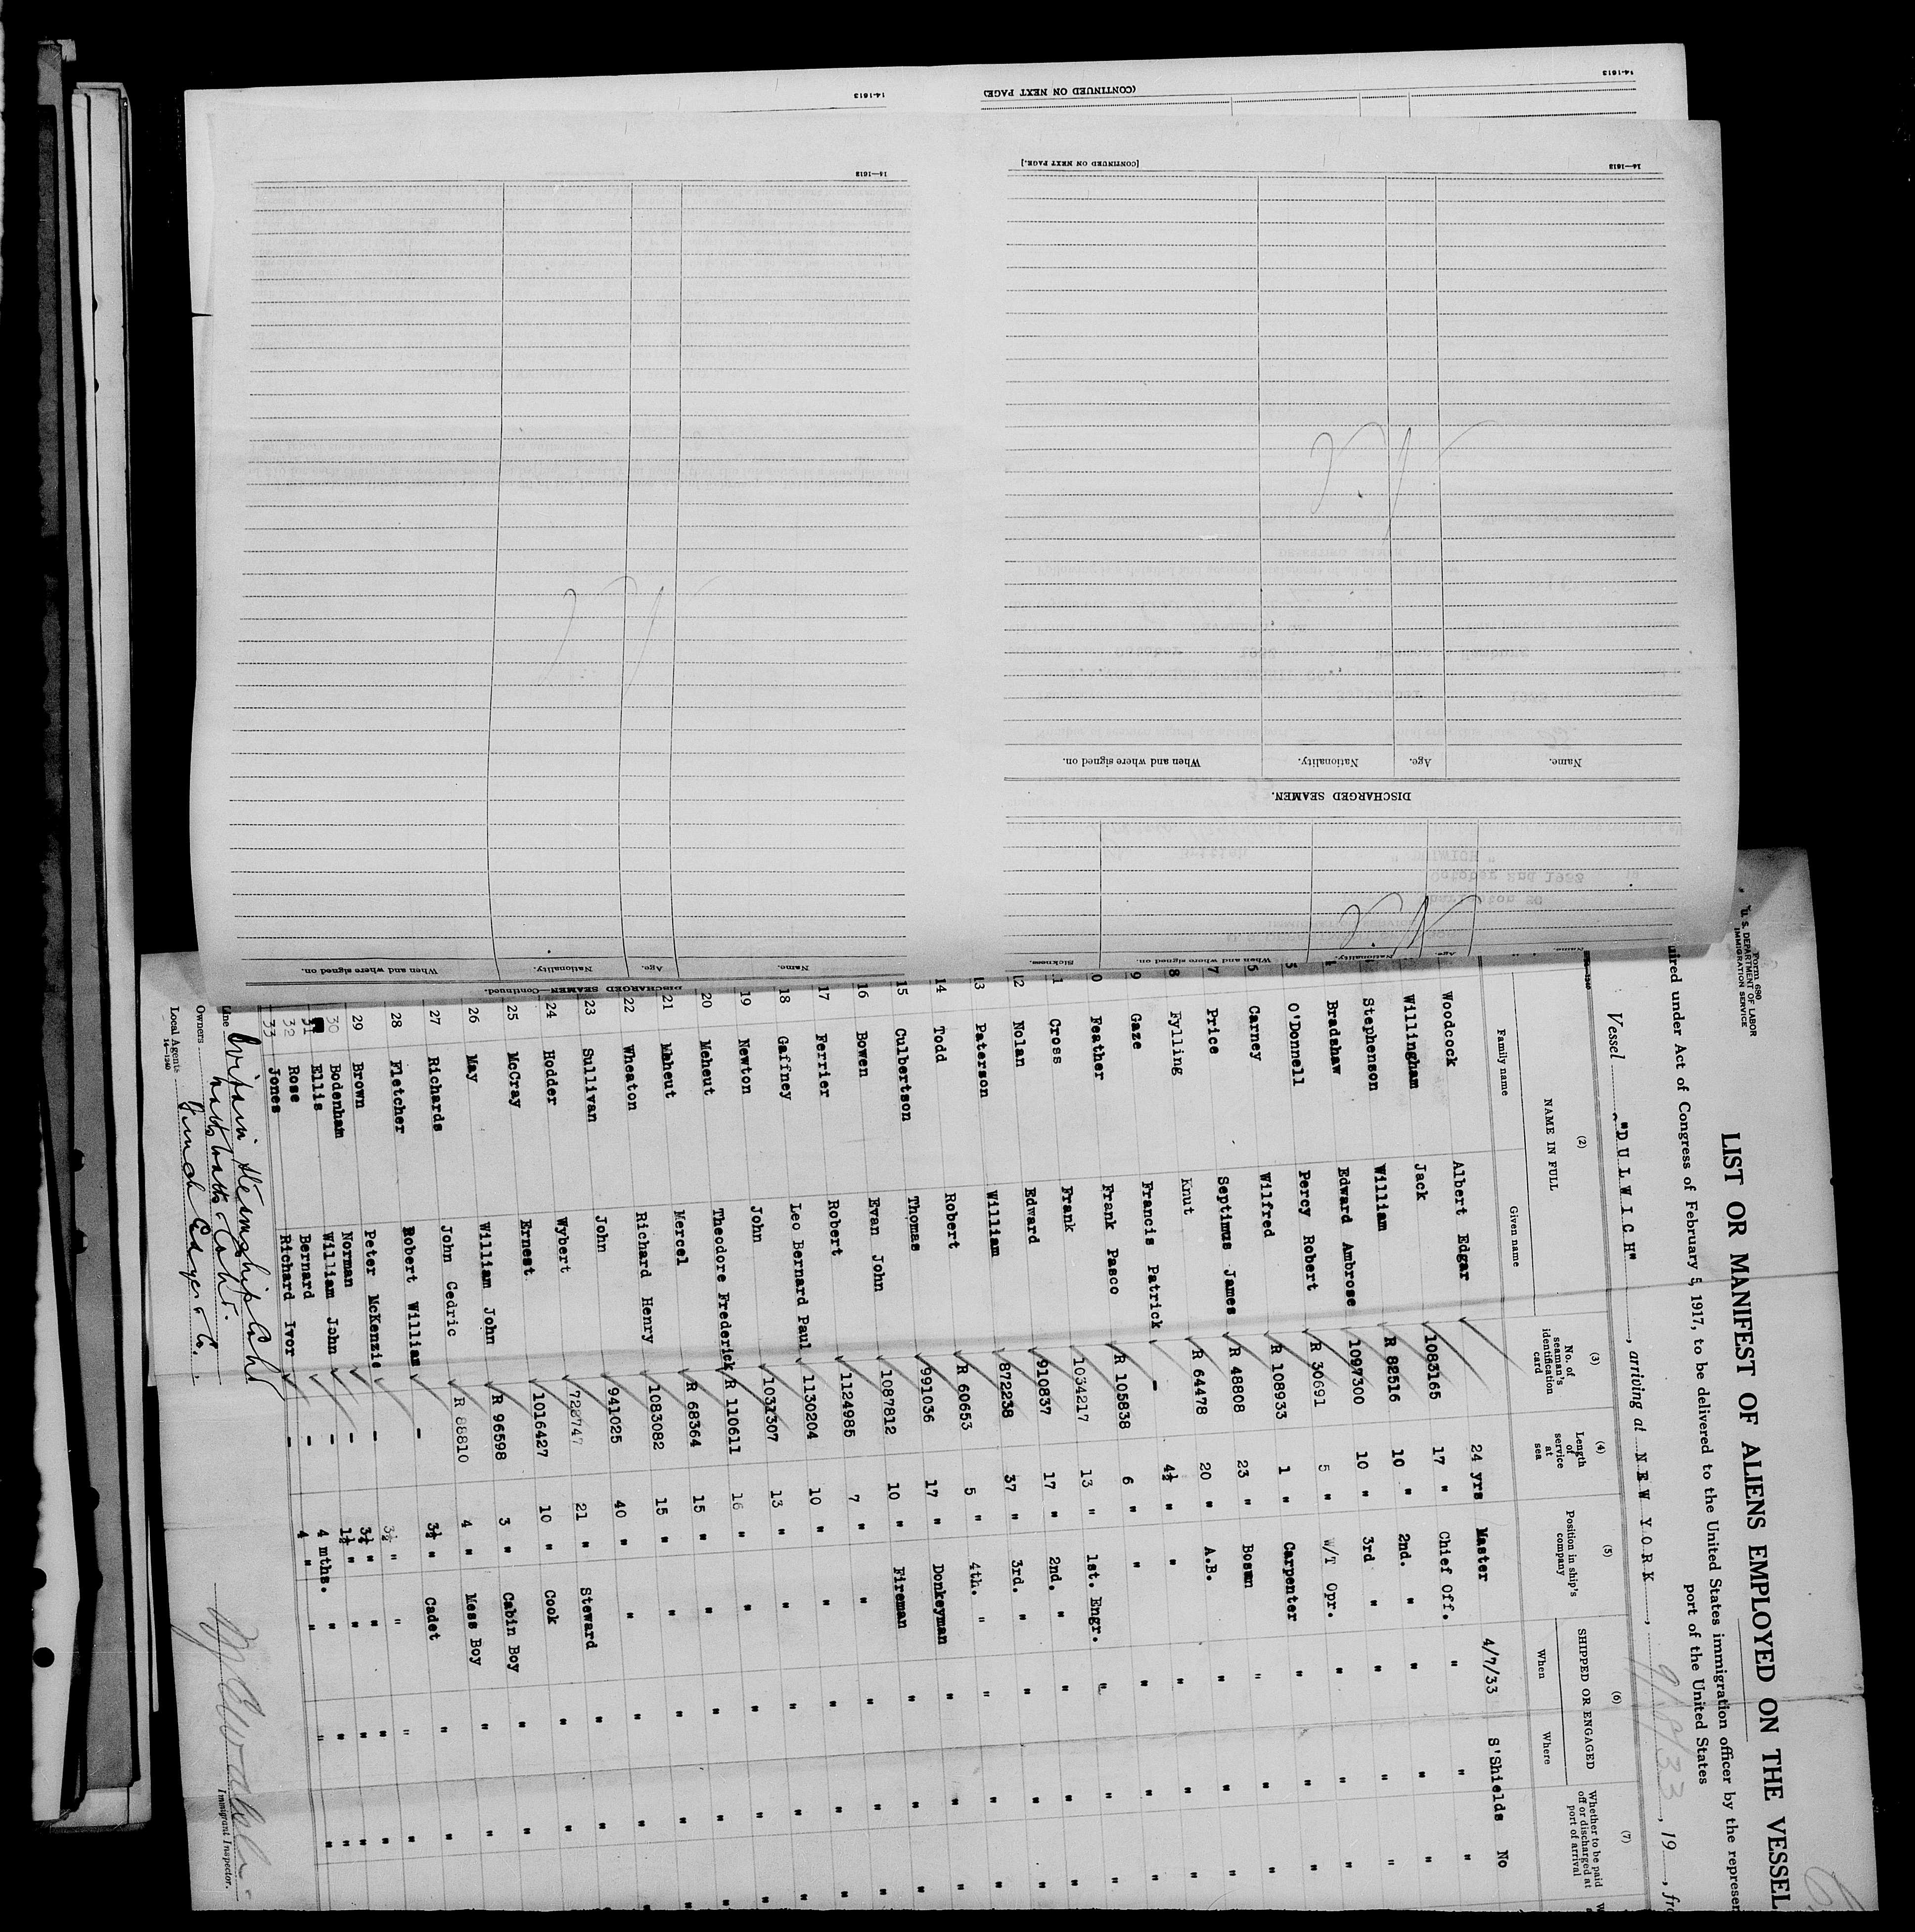 14-1613
14-1613
(CONTINUED ON NEXT PAGE)
[CONTINUED ON NEXT PAGE.]
14—1613
14—1613
Name. Age. Nationality. When and where signed on.
DISCHARGED SEAMEN.
Name. Age. Nationality. When and where signed on. Sickness.
DISCHARGED SEAMEN—Continued.
Name. Age. Nationality. When and where signed on.
Form 680
U. S. DEPARTMENT OF LABOR
IMMIGRATION SERVICE
LIST OR MANIFEST OF ALIENS EMPLOYED ON THE VESSEL
uired under Act of Congress of February 5, 1917, to be delivered to the United States immigration officer by the represen
port of the United States
Vessel "DULWICH", arriving at NEW YORK, 9/8/33, 19, fro
(2) (3) (4) (5) (6) (7)
NAME IN FULL
Family name Given name
No. of seaman's identification card
Length of service at sea
Position in ship's company
SHIPPED OR ENGAGED
When Where
Whether to be paid off or discharged at port of arrival
Woodcock Albert Edgar 24 yrs Master 4/7/33 S'Shields No
Willingham Jack 1083165 17 " Chief Off. " " "
Stephenson William R 82516 10 " 2nd. " " " "
Bradshaw Edward Ambrose 1097300 10 " 3rd " " " "
O'Donnell Percy Robert R 30691 5 " W/T Opr. " " "
Carney Wilfred R 108933 1 " Carpenter " " "
7 Price Septimus James R 48808 23 " Bosun " " "
8 Fylling Knut R 64478 20 " A.B. " " "
9 Gaze Francis Patrick - 4½ " " " " "
0 Feather Frank Pasco R 105838 6 " " " " "
1 Cross Frank 1034217 13 " 1st. Engr. " " "
12 Nolan Edward 910837 17 " 2nd. " " " "
13 Paterson William 872238 37 " 3rd. " " " "
14 Todd Robert R 60653 5 " 4th. " " " "
15 Culbertson Thomas 991036 17 " Donkeyman " " "
16 Bowen Evan John 1087812 10 " Fireman " " "
17 Ferrier Robert 1124985 7 " " " " "
18 Gaffney Leo Bernard Paul 1130204 10 " " " " "
19 Newton John 1031307 13 " " " " "
20 Meheut Theodore Frederick R 110611 16 " " " " "
21 Maheut Mercel R 68364 15 " " " " "
22 Wheaton Richard Henry 1083082 15 " " " " "
23 Sullivan John 941025 40 " " " " "
24 Hodder Wybert 728747 21 " Steward " " "
25 McCray Ernest 1016427 10 " Cook " " "
26 May William John R 96598 3 " Cabin Boy " " "
27 Richards John Cedric R 88810 4 " Mess Boy " " "
28 Fletcher Robert William - 3½ " Cadet " " "
29 Brown Peter McKenzie - 3½ " " " "
30 Bodenham Norman - 3½ " " " "
31 Ellis William John - 1½ " " " "
32 Rose Bernard - 4 mths. " " "
33 Jones Richard Ivor - 4 " " " "
Line Britain Steamship Co Ltd
Owners Watts Watts & Co Ltd.
Local Agents Funch Edye & Co.
14—1240
Immigrant Inspector.